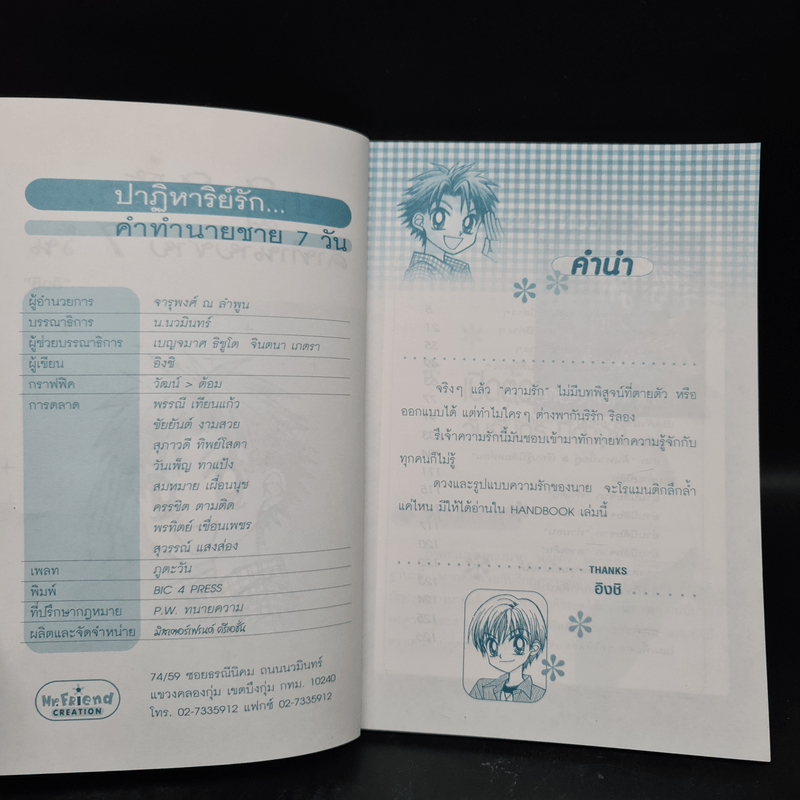 ปาฏิหาริย์รัก...
คำทำนายชาย 7 วัน
ผู้อำนวยการ จารุพงศ์ ณ ลำพูน
บรรณาธิการ น.นวมินทร์
ผู้ช่วยบรรณาธิการ เบญจมาศ ธิชูโต จินตนา เภตรา
ผู้เขียน อิงชิ
กราฟฟิค วัฒน์ > ต้อม
การตลาด พรรณี เทียนแก้ว
ชัยยันต์ งามสวย
สุภาวดี ทิพย์โสดา
วันเพ็ญ ทาแป้ง
สมหมาย เผื่อนนุช
ครรชิต ตามติด
พรทิตย์ เชื่อนเพชร
สุวรรณ์ แสงส่อง
เพลท ภูตะวัน
พิมพ์ BIC 4 PRESS
ที่ปรึกษากฎหมาย P.W. ทนายความ
ผลิตและจัดจำหน่าย มิสเตอร์เฟรนด์ ครีเอชั่น
Mr.Friend
CREATION
74/59 ซอยธรณีนิคม ถนนนวมินทร์
แขวงคลองกุ่ม เขตบึงกุ่ม กทม. 10240
โทร. 02-7335912 แฟกซ์ 02-7335912
คำนำ
จริงๆ แล้ว "ความรัก" ไม่มีบทพิสูจน์ที่ตายตัว หรือ
ออกแบบได้ แต่ทำไมใครๆ ต่างพากันริรัก ริลอง
รึเจ้าความรักนี้มันชอบเข้ามาทักท่ายทำความรู้จักกับ
ทุกคนก็ไม่รู้
ดวงและรูปแบบความรักของนาย จะโรแมนติกลึกล้ำ
แค่ไหน มีให้ได้อ่านใน HANDBOOK เล่มนี้
THANKS
อิงชิ